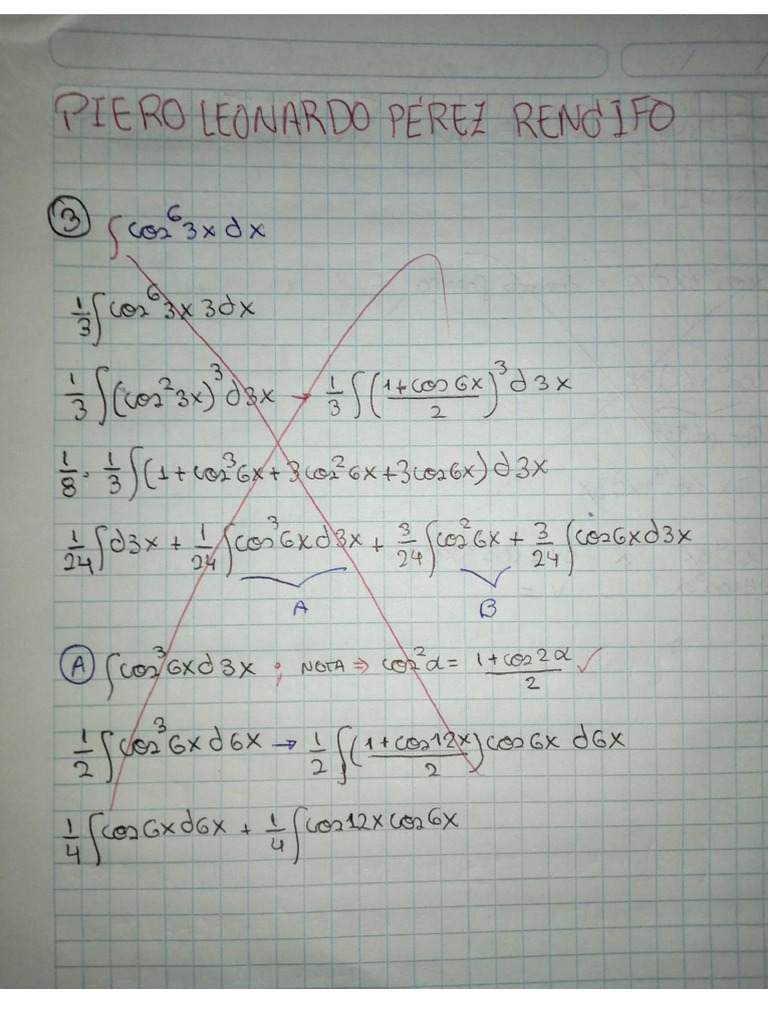 PIERO LEONARDO PÉREZ RENGIFO
③ ∫cos⁶3xdx
1/3 ∫cos⁶3x3dx
1/3 ∫(cos²3x)³d3x → 1/3 ∫((1+cos6x)/2)³d3x
1/8 · 1/3 ∫(1+cos³6x+3cos²6x+3cos6x)d3x
1/24 ∫d3x + 1/24 ∫cos³6xd3x + 3/24 ∫cos²6x + 3/24 ∫cos6xd3x
A B
Ⓐ ∫cos³6xd3x ; NOTA ⇒ cos²α = (1+cos2α)/2 ✓
1/2 ∫cos³6xd6x → 1/2 ∫((1+cos12x)/2)cos6x d6x
1/4 ∫cos6xd6x + 1/4 ∫cos12xcos6x